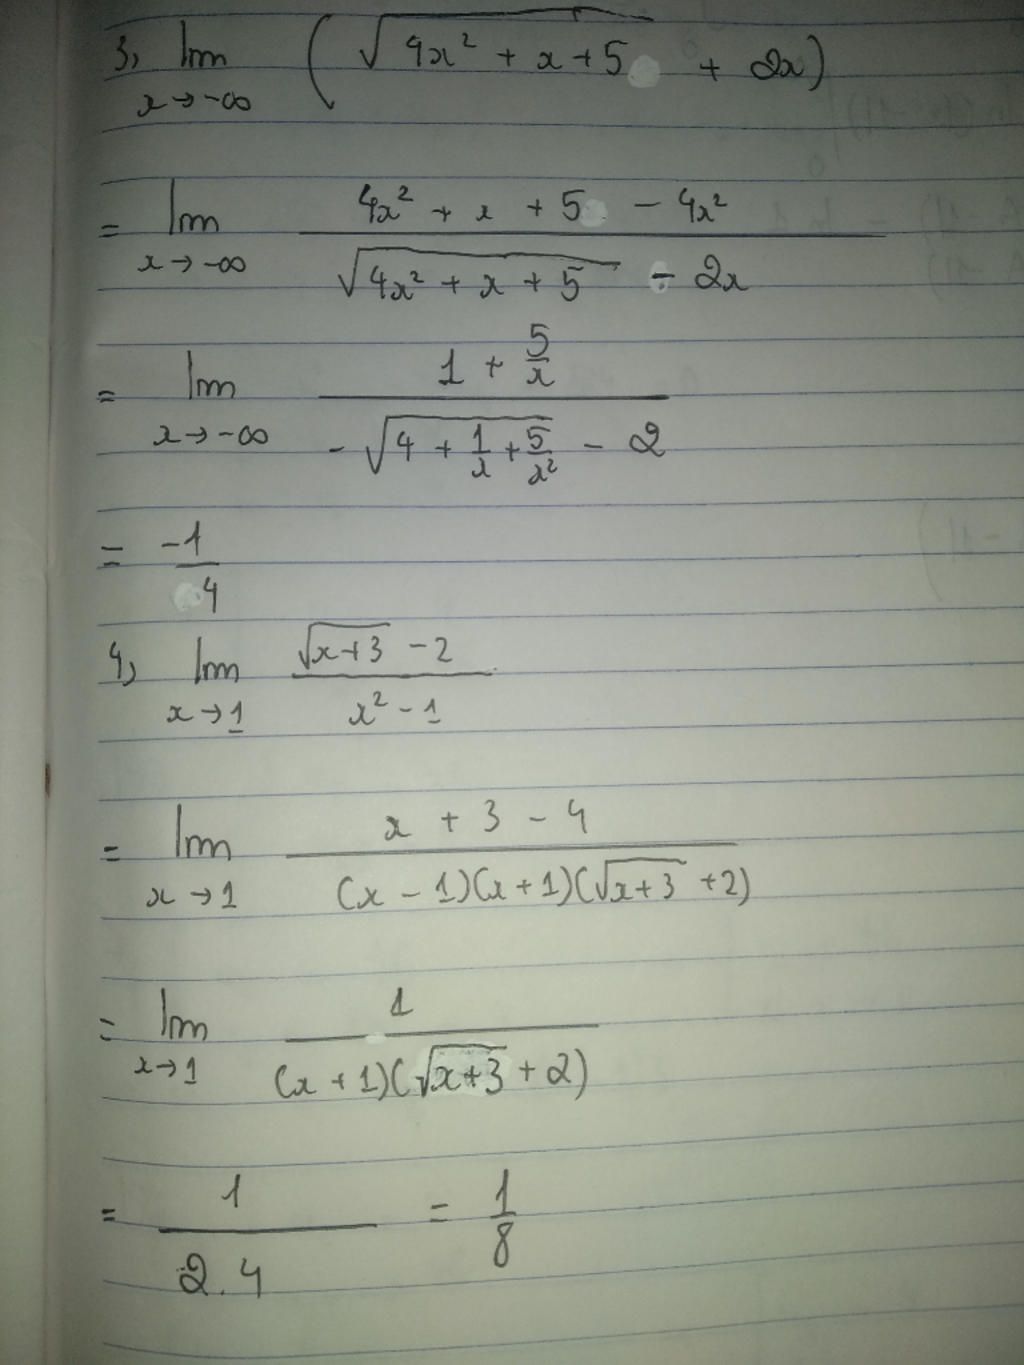 3, lim x→-∞ (√(4x² + x + 5) + 2x)
= lim x→-∞ (4x² + x + 5 - 4x²) / (√(4x² + x + 5) - 2x)
= lim x→-∞ (1 + 5/x) / (-√(4 + 1/x + 5/x²) - 2)
= -1/4
4, lim x→1 (√(x+3) - 2) / (x² - 1)
= lim x→1 (x + 3 - 4) / ((x - 1)(x + 1)(√(x+3) + 2))
= lim x→1 1 / ((x + 1)(√(x+3) + 2))
= 1 / (2.4) = 1/8